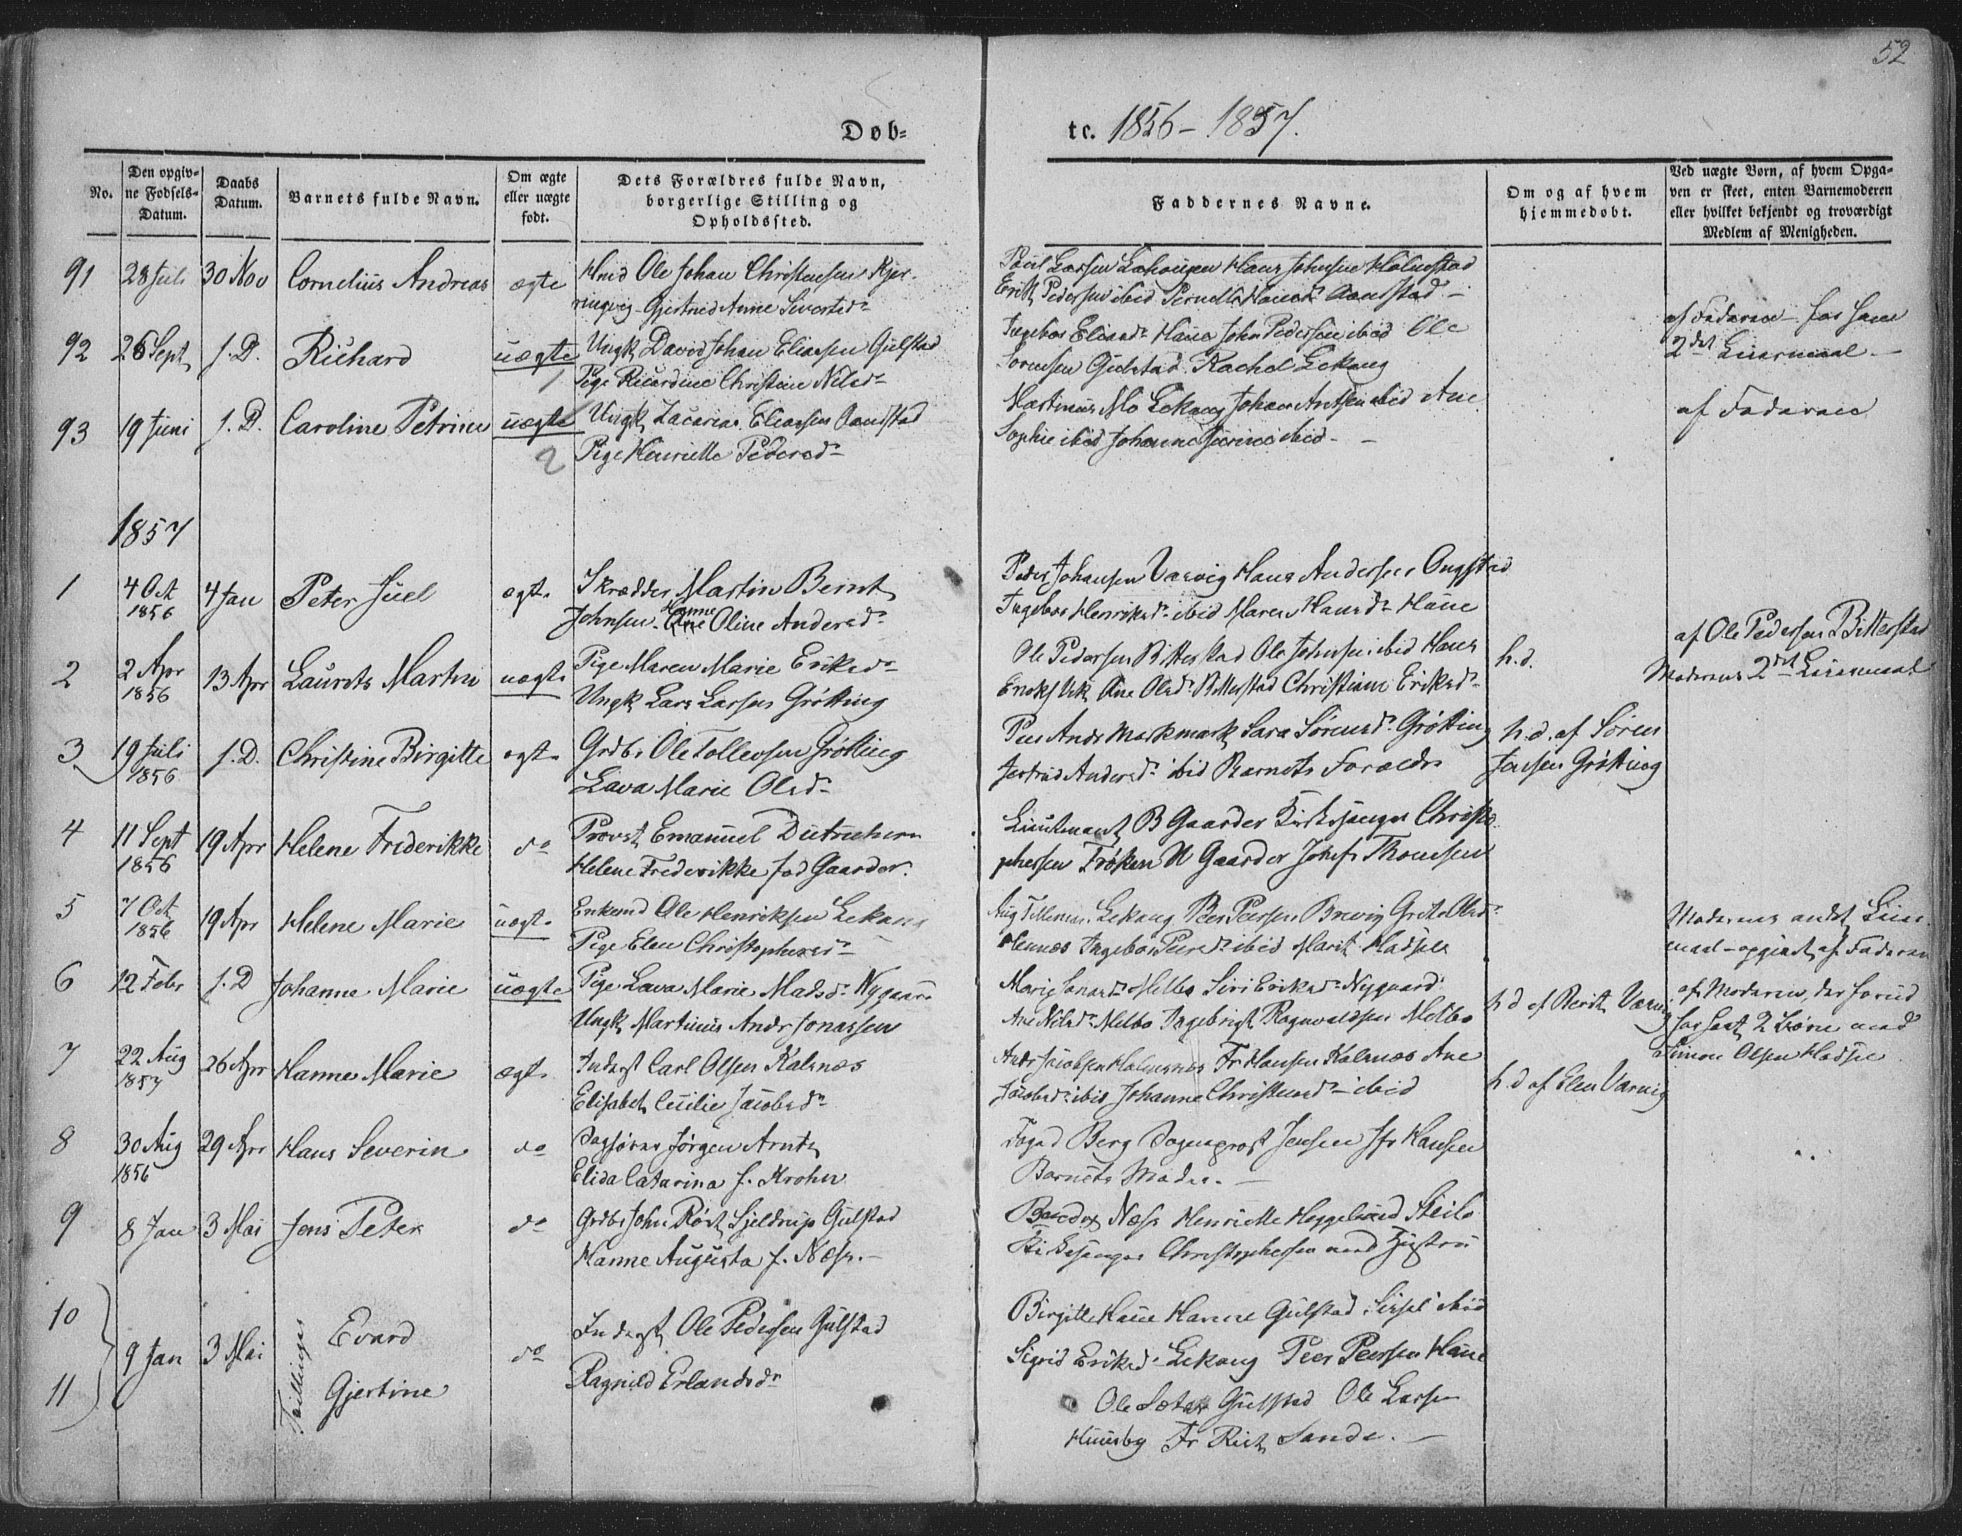 52
Døb-
te. 1856 – 1857.
No.
Den opgiv-
ne Fødsels-
Datum.
Daabs
Datum.
Barnets fulde Navn.
Om ægte
eller uægte
født.
Dets Forældres fulde Navn,
borgerlige Stilling og
Opholdssted.
Faddernes Navne.
Om og af hvem
hjemmedøbt.
Ved uægte Børn, af hvem Opga-
ven er skeet, enten Barnemoderen
eller hvilket bekjendt og troværdigt
Medlem af Menigheden.
91 28 Juli 30 Nov Cornelius Andreas ægte
Hmd Ole Johan Christensen Kjer-
ringvig - Gjertrud Anne Sivertsd.
Poul Larsen Hans Johnsen Holmstad
Erik Pedersen ibid Pernille Aandstad –
92 26 Sept s. D. Richard uægte
1
Ungk. David Johan Eliassen Gulstad
Pige Ricardine Christine Nilsd.
Ingebor Eliasd. Haue John Pedersen ibid Ole
Sørensen Gulstad. Rachel Lekang
af Faderen for hans
2det Leiermaal. –
93 19 Juni s. D. Caroline Petrine uægte
2
Ungk. Zacarias Eliassen Aandstad
Pige Henriette Pedersd.
Martinus Mo Lekang Johan Antsen ibid Ane
Sophie ibid Johanne ibid. –
af Faderen
1857
1 4 Oct 1856 4 Jan Peter Juel ægte
Skrædder Martin Bernt
Johnsen. Hanne Oline Andersd.
Peder Johansen Varvig Hans Andersen Ongstad
Ingebor Henriksd. ibid Maren Hansd. Haue
2 2 Apr 1856 13 Apr Laurits Martin uægte
Pige Maren Marie Eriksd.
Ungk. Lars Larsen Grøtting
Ole Pedersen Bitterstad Ole Johnsen ibid Hans
Ane Olsd. Bitterstad Christiane Eriksd.
h. d.
af Ole Pedersen Bitterstad
Moderens 2det Leiermaal
3 19 Juli 1856 s. D. Christine Birgitte ægte
Grdbr Ole Tollevsen Grøtting
Lava Marie Olsd.
Peer Ands Markmark Sara Sørensd. Grøtting
Jertrud Andersd. ibid Barnets Forældre
h. d. af Søren
Jensen Grøtting
4 11 Sept 1856 19 Apr Helene Frederikke do
Provst Emanuel Dietrichson
Helene Frederikke fød Gaarder.
Lieutenant B Gaarder Kirkesanger Christo-
phersen Frøken H Gaarder Jomfr Thomsen
5 7 Oct 1856 19 Apr Helene Marie uægte
Enkemd Ole Henriksen Lekang
Pige Elen Christophersd. –
Lekang Peer Peersen Breivig Grete Olsd.
Ingebor Peersd. ibid Marit Hadsel
Moderens andet Leier-
maal – opgivet af Faderen
6 12 Febr s. D Johanne Marie uægte
Pige Lava Marie Madsd. Nygaard
Ungk. Martinus Andr Jonassen
Marie Melbo Siri Eriksd. Nygaard.
Ane Nilsd. Melbo Ingebrigt Ragnvaldsen Melbo
h. d af Berit Varvig
af Moderen, der forud
har havt 2 Børn med
Simon Olsen Hadsel
7 22 Aug 1857 26 Apr Hanne Marie ægte
Inderst Carl Olsen Kalsnæs
Elisabet Cecilie Jacobsd.
Andr Jacobsen Fr Hansen Kalsnæs Ane
Jacobsd. ibid Johanne Christensd. – ibid
h. d af Elen Varvig
8 30 Aug 1856 29 Apr Hans Severin do
Sagfører Jørgen Arntz
Elida Catarina f. Krohn
Foged Berg Sogneprest Jensen Jfr Hansen
Barnets Moder. –
9 8 Jan 3 Mai Jens Peter do
Grdbr John Røst Sjeldrup Gulstad
Hanne Augusta f. Næss. –
Næss Henriette Heggelund Steilo
Kirkesanger Christophersen med Hustru
10
11
9 Jan 3 Mai
Tvillinger
Evard
Gjertine
do
Inderst Ole Pedersen Gulstad
Ragnild Erlandsd.
Birgitte Haue Hanne Gulstad Sissel ibid
Sigrid Eriksd. Lekang Peer Peersen Haue
Ole Sæter Gulstad Ole Larsen
Huusby Fr Rist Sande. –